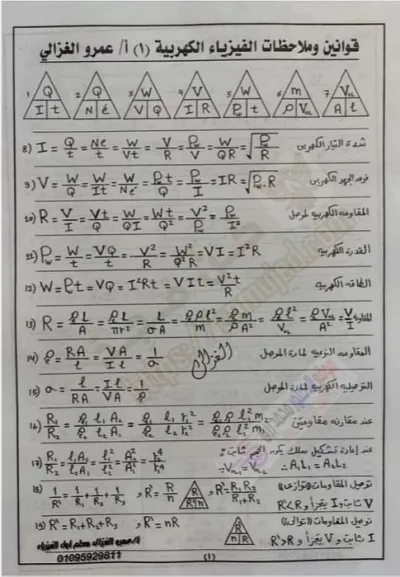 قوانين وملاحظات الفيزياء الكهربية (١) أ/ عمرو الغزالي
1 Q I t 2 Q N e 3 W V Q 4 V I R 5 W Pw t 6 m ρ Vₒₗ 7 Vₒₗ A l
8) I = Q/t = Ne/t = W/Vt = V/R = Pw/V = W/QR = √(Pw/R) شدة التيار الكهربى
9) V = W/Q = W/It = W/Ne = Pw t/Q = Pw/I = IR = √(Pw.R) فرق الجهد الكهربى
10) R = V/I = Vt/Q = W/IQ = Wt/Q² = V²/Pw = Pw/I² المقاومة الكهربية لموصل
11) Pw = W/t = VQ/t = V²/R = W²/Q²R = VI = I²R القدرة الكهربية
12) W = Pt = VQ = I²Rt = VIt = V²t/R الطاقة الكهربية
13) R = ρl/A = ρl/πr² = l/σA = ρρl²/m = ρm/ρA² = ρl²/Vₒₗ = ρVₒₗ/A² = V/I
14) ρ = RA/l = VA/Il = 1/σ الغزالى المقاومة النوعية لمادة الموصل
15) σ = l/RA = Il/VA = 1/ρ التوصيلية الكهربية لمادة الموصل
16) R₁/R₂ = ρ₁l₁A₂/ρ₂l₂A₁ = ρ₁l₁r₂²/ρ₂l₂r₁² = ρ₁ρ₁l₁²m₂/ρ₂ρ₂l₂²m₁ عند مقارنة مقاومتين
17) R₁/R₂ = l₁A₂/l₂A₁ = l₁²/l₂² = A₂²/A₁² = r₂⁴/r₁⁴ عند إعادة تشكيل سلك يكون الحجم ثابت
∴ Vₒₗ₁ = Vₒₗ₂ ∴ A₁L₁ = A₂L₂
18) 1/R' = 1/R₁ + 1/R₂ + 1/R₃ , R' = R/n R R' n , R' = R₁R₂/R₁+R₂ توصيل المقاومات (توازى)
V ثابت و I يتجزأ و R' < R
19) R' = R₁+R₂+R₃ , R' = nR R' n R توصيل المقاومات (توالى)
I ثابت و V يتجزأ و R' > R
أ/عمرو الغزالى معلم أول الفيزياء
01095929811
(١)